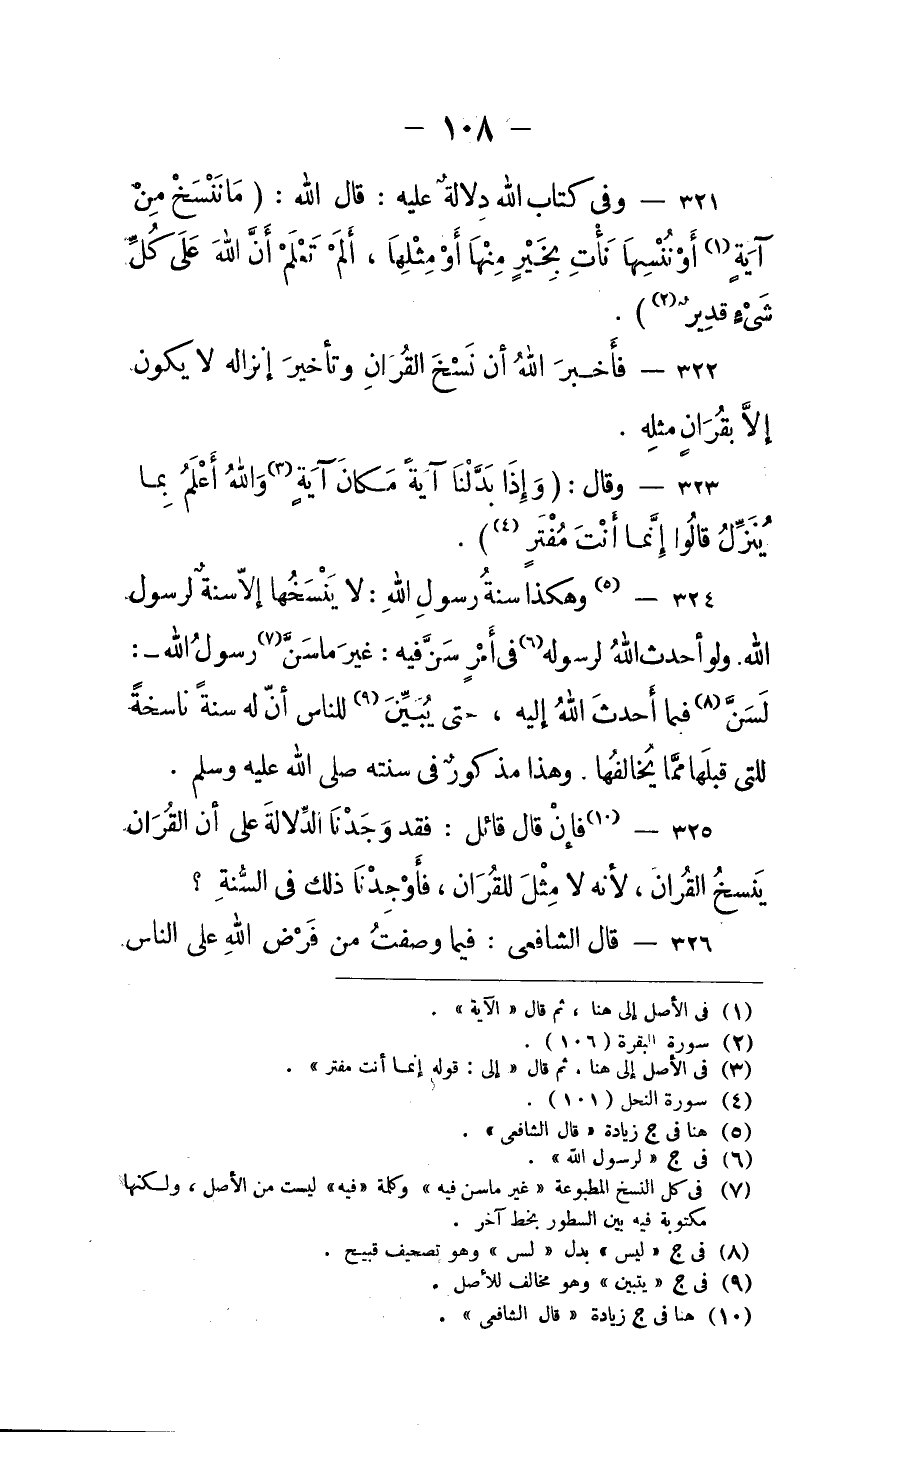 — ١٠٨ —
٣٢١ — وفى كتاب الله دِلالةٌ عليه : قال الله : ( مَا نَنْسَخْ مِنْ
آيَةٍ(١) أَوْ نُنْسِهَا نَأْتِ بِخَيْرٍ مِنْهَا أَوْ مِثْلِهَا ، أَلَمْ تَعْلَمْ أَنَّ اللهَ عَلَى كُلِّ
شَىْءٍ قدِيرٌ(٢) ) .
٣٢٢ — فأَخبرَ اللهُ أن نَسْخَ القُرَانِ وتأخيرَ إنزاله لا يكون
إلاَّ بقُرَانٍ مثلِهِ .
٣٢٣ — وقال : ( وَإِذَا بَدَّلْنَا آيَةً مَكانَ آيَةٍ(٣) وَاللهُ أَعْلَمُ بِما
يُنَزِّلُ قالُوا إِنَّما أَنْتَ مُفْتَرٍ (٤) ) .
٣٢٤ — (٥) وهكذا سنةُ رسولِ اللهِ : لا يَنْسَخُها إلاّ سنةٌ لرسول
الله. ولو أحدث اللهُ لرسوله(٦) فى أَمْرٍ سَنَّ فيه : غيرَ ما سَنَّ(٧) رسولُ الله ـ :
لَسَنَّ(٨) فيما أَحدثَ اللهُ إليه ، حتى يُبَيِّنَ(٩) للناس أنّ له سنةً ناسخةً
للتى قبلَها ممَّا يُخالفُها . وهذا مذكورٌ فى سنته صلى الله عليه وسلم .
٣٢٥ — (١٠) فإنْ قال قائل : فقد وَجَدْنَا الدِّلالةَ على أن القُرَان
يَنسخُ القُرانَ ، لأنه لا مِثْلَ للقُرَان ، فأَوْجِدْنَا ذلك فى السُّنةِ ؟
٣٢٦ — قال الشافعى : فيما وصفتُ من فَرْض اللهِ على الناس
(١) فى الأصل إلى هنا ، ثم قال « الآية » .
(٢) سورة البقرة ( ١٠٦ ) .
(٣) فى الأصل إلى هنا . ثم قال « إلى : قوله إنما أنت مفتر » .
(٤) سورة النحل ( ١٠١ ) .
(٥) هنا فى ج زيادة « قال الشافعى » .
(٦) فى ج « لرسول الله » .
(٧) فى كل النسخ المطبوعة « غير ما سن فيه » وكلمة «فيه» ليست من الأصل ، ولكنها
مكتوبة فيه بين السطور بخط آخر .
(٨) فى ج « ليس » بدل « لسن » وهو تصحيف قبيح .
(٩) فى ج « يتبين » وهو مخالف للأصل .
(١٠) هنا فى ج زيادة « قال الشافعى » .